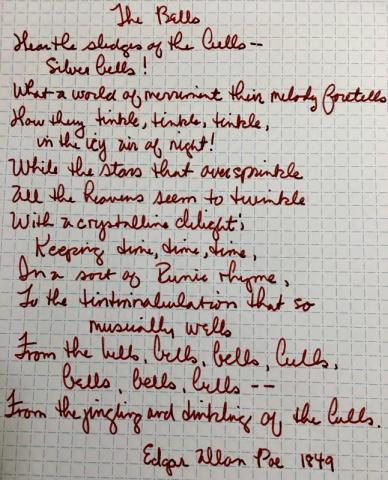 The Bells
Hear the sledges of the bells--
Silver bells!
What a world of merriment their melody foretells
How they tinkle, tinkle, tinkle,
in the icy air of night!
While the stars that oversprinkle
all the heavens seem to twinkle
With a crystalline delight;
Keeping time, time, time,
In a sort of Runic rhyme,
To the tintinnabulation that so
musically wells
From the bells, bells, bells, bells,
bells, bells, bells --
From the jingling and tinkling of the bells.
Edgar Allan Poe 1849